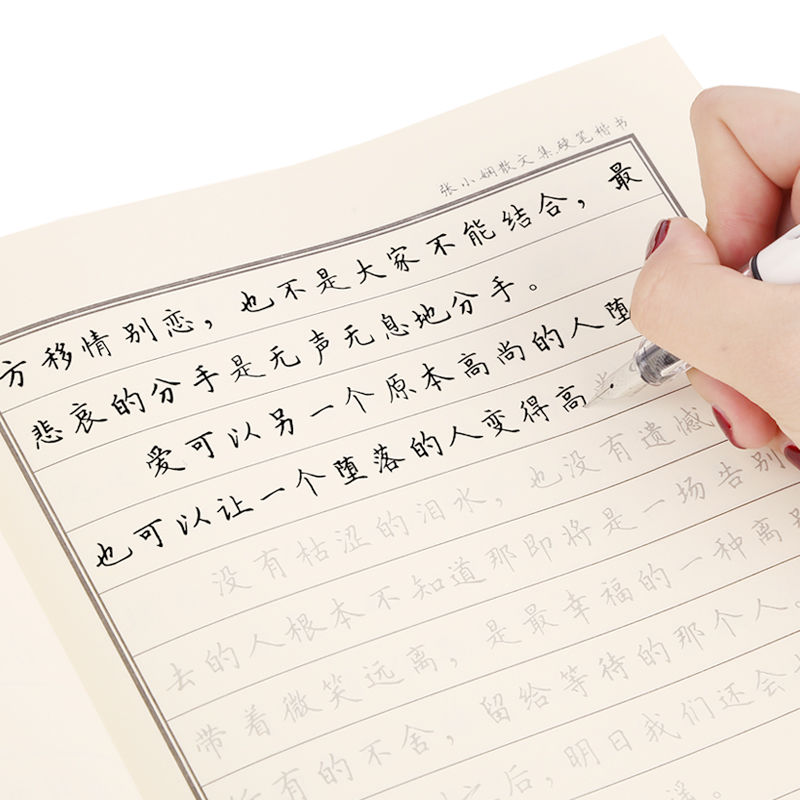 张小娴散文集硬笔楷书
方移情别恋，也不是大家不能结合，最
悲哀的分手是无声无息地分手。
爱可以另一个原本高尚的人堕
也可以让一个堕落的人变得高尚.
没有枯涩的泪水，也没有遗憾
去的人根本不知道那即将是一场告别
带着微笑远离，是最幸福的一种离别
所有的不舍，留给等待的那个人。
之后，明日我们还会